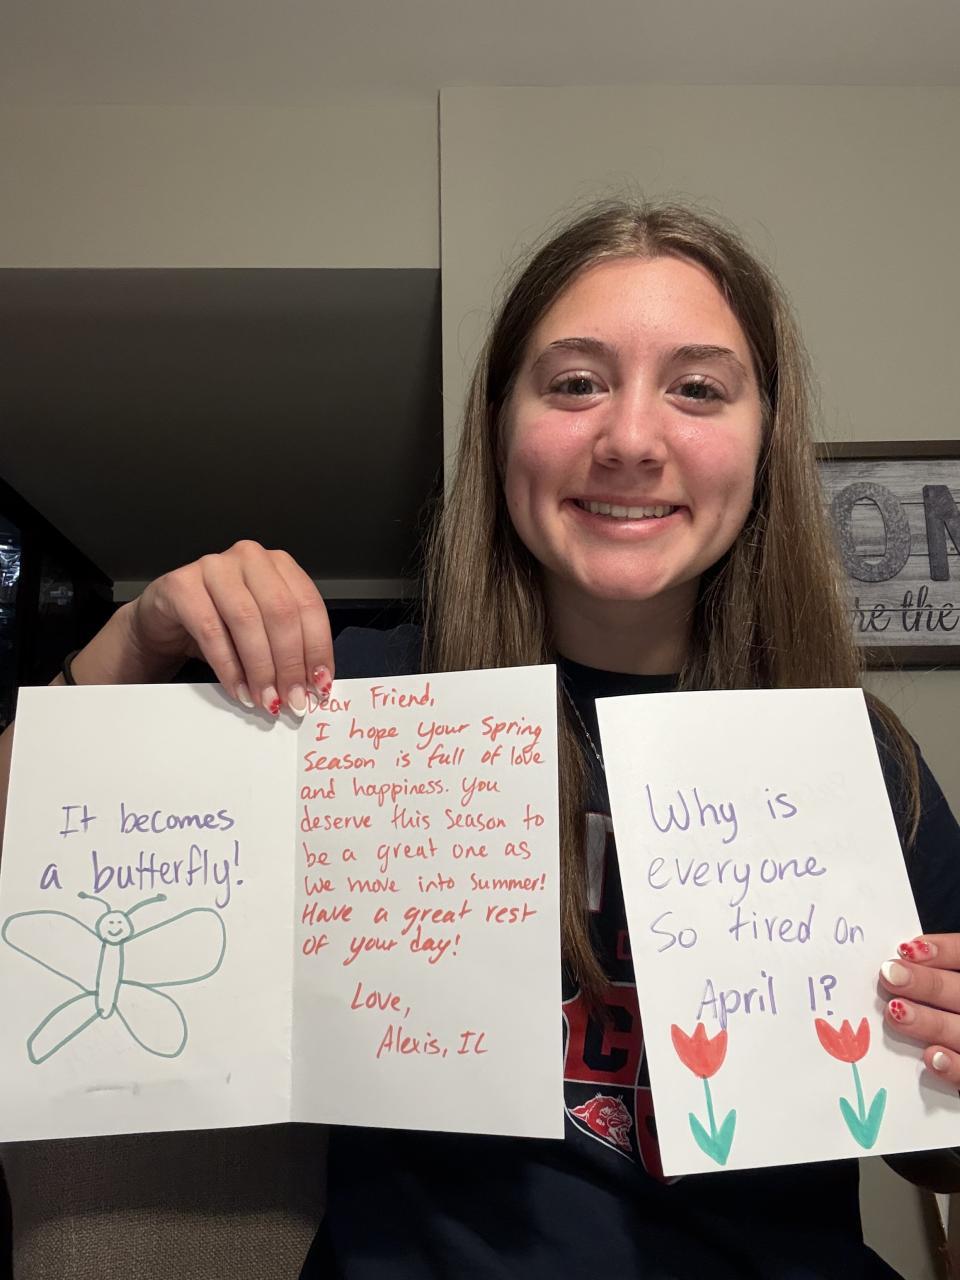 It becomes
a butterfly!
Dear Friend,
I hope your Spring
Season is full of love
and happiness. You
deserve this season to
be a great one as
we move into summer!
Have a great rest
of your day!
Love,
Alexis, IL
Why is
everyone
So tired on
April 1?
re the